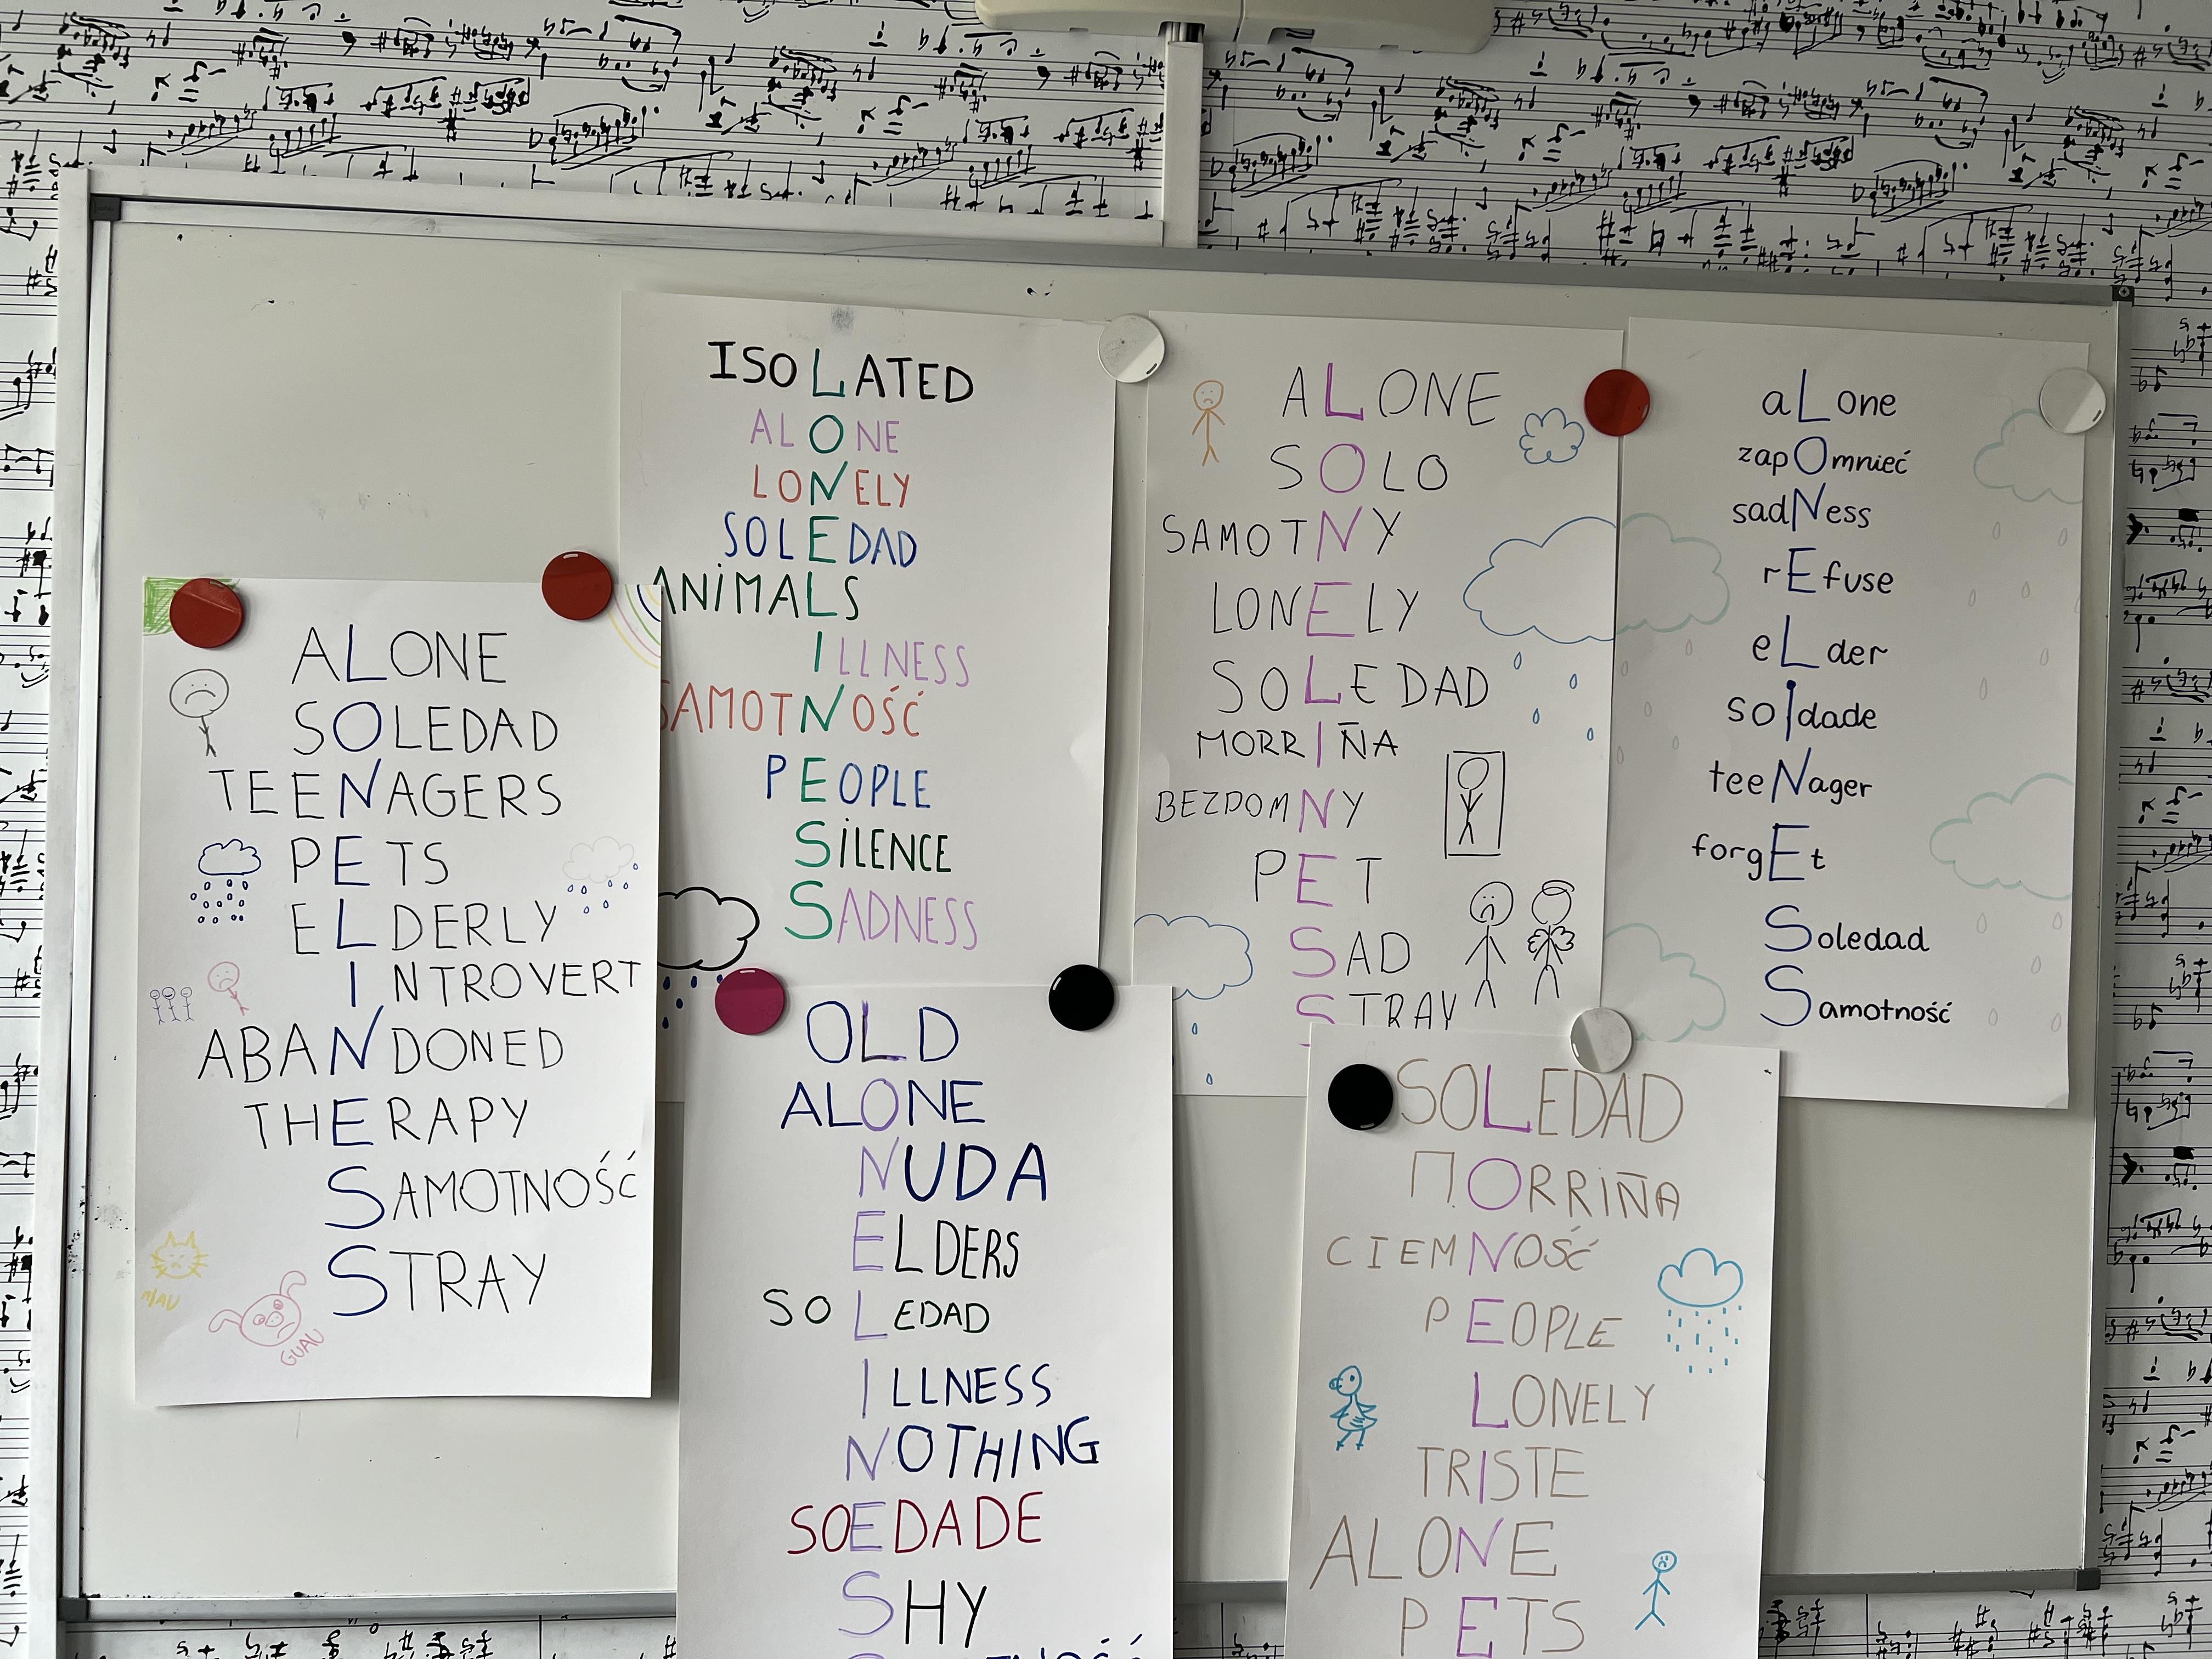 ALONE
SOLEDAD
TEENAGERS
PETS
ELDERLY
INTROVERT
ABANDONED
THERAPY
SAMOTNOŚĆ
STRAY
MIAU
GUAU
ISOLATED
ALONE
LONELY
SOLEDAD
ANIMALS
ILLNESS
SAMOTNOŚĆ
PEOPLE
SiLENCE
SADNESS
ALONE
SOLO
SAMOTNY
LONELY
SOLEDAD
MORRIÑA
BEZDOMNY
PET
SAD
STRAY
aLone
zapOmnieć
sadNess
rEfuse
eLder
soIdade
teeNager
forgEt
Soledad
Samotność
OLD
ALONE
NUDA
ELDERS
SOLEDAD
ILLNESS
NOTHING
SOEDADE
SHY
SOLEDAD
MORRIÑA
CIEMNOŚĆ
PEOPLE
LONELY
TRISTE
ALONE
PETS